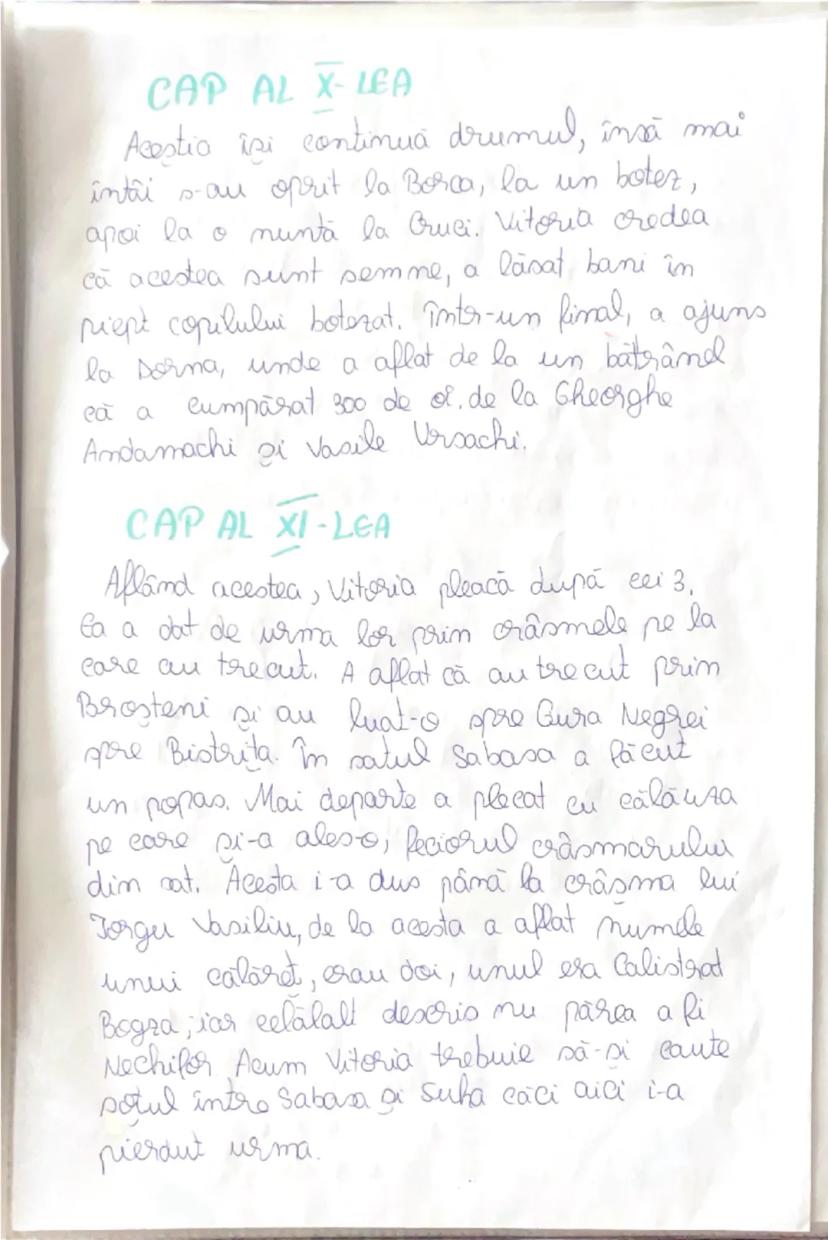 CAP AL X-LEA
Aceștia își continuă drumul, însă mai
întâi s-au oprit la Borca, la un botez,
apoi la o nuntă la Cruci. Vitoria credea
că acestea sunt semne, a lăsat bani în
piept copilului botezat. Într-un final, a ajuns
la Dorna, unde a aflat de la un bătrânel
că a cumpărat 300 de oi. de la Gheorghe
Andamachi și Vasile Ursachi.
CAP AL XI-LEA
Aflând acestea, Vitoria pleacă după cei 3.
Ea a dat de urma lor prin crâșmele pe la
care au trecut. A aflat că au trecut prin
Broșteni și au luat-o spre Gura Negrei
spre Bistrița. În satul Sabasa a făcut
un popas. Mai departe a plecat cu călăuza
pe care și-a ales-o, feciorul crâșmarului
din sat. Acesta i-a dus până la crâșma lui
Iorgu Vasiliu, de la acesta a aflat numele
unui călăreț, erau doi, unul era Calistrat
Bogza; iar celălalt descris nu părea a fi
Nechifor Acum Vitoria trebuie să-și caute
soțul între Sabasa și Suha căci aici i-a
pierdut urma.